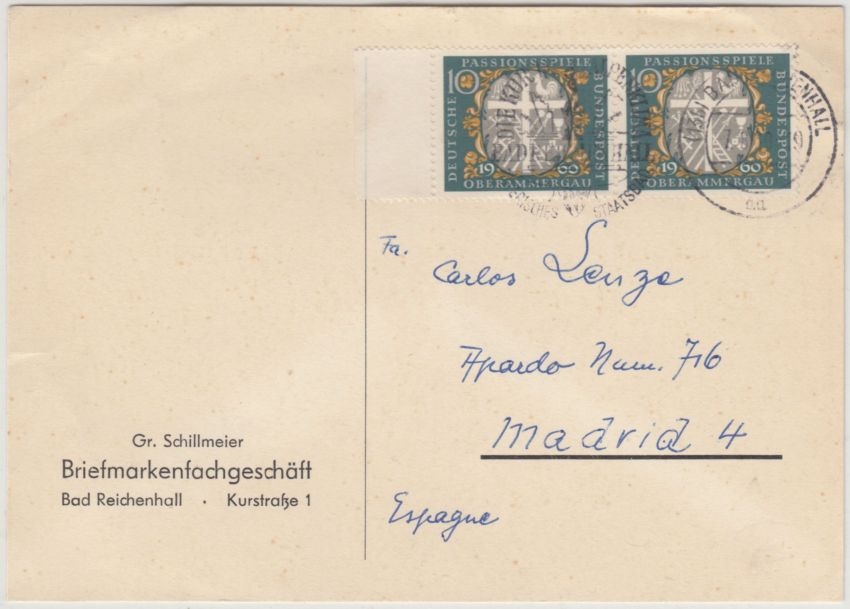 10 PASSIONSPIELE
DEUTSCHE
BUNDESPOST
1960
OBERAMMERGAU
10 PASSIONSPIELE
DEUTSCHE
BUNDESPOST
1960
OBERAMMERGAU
DIE KUR
STAATSBAD
(13b) BAD
ENHALL
aa
Fa.
Carlos Lenze
Apardo Num. 716
Madrid 4
Espagne
Gr. Schillmeier
Briefmarkenfachgeschäft
Bad Reichenhall · Kurstraße 1